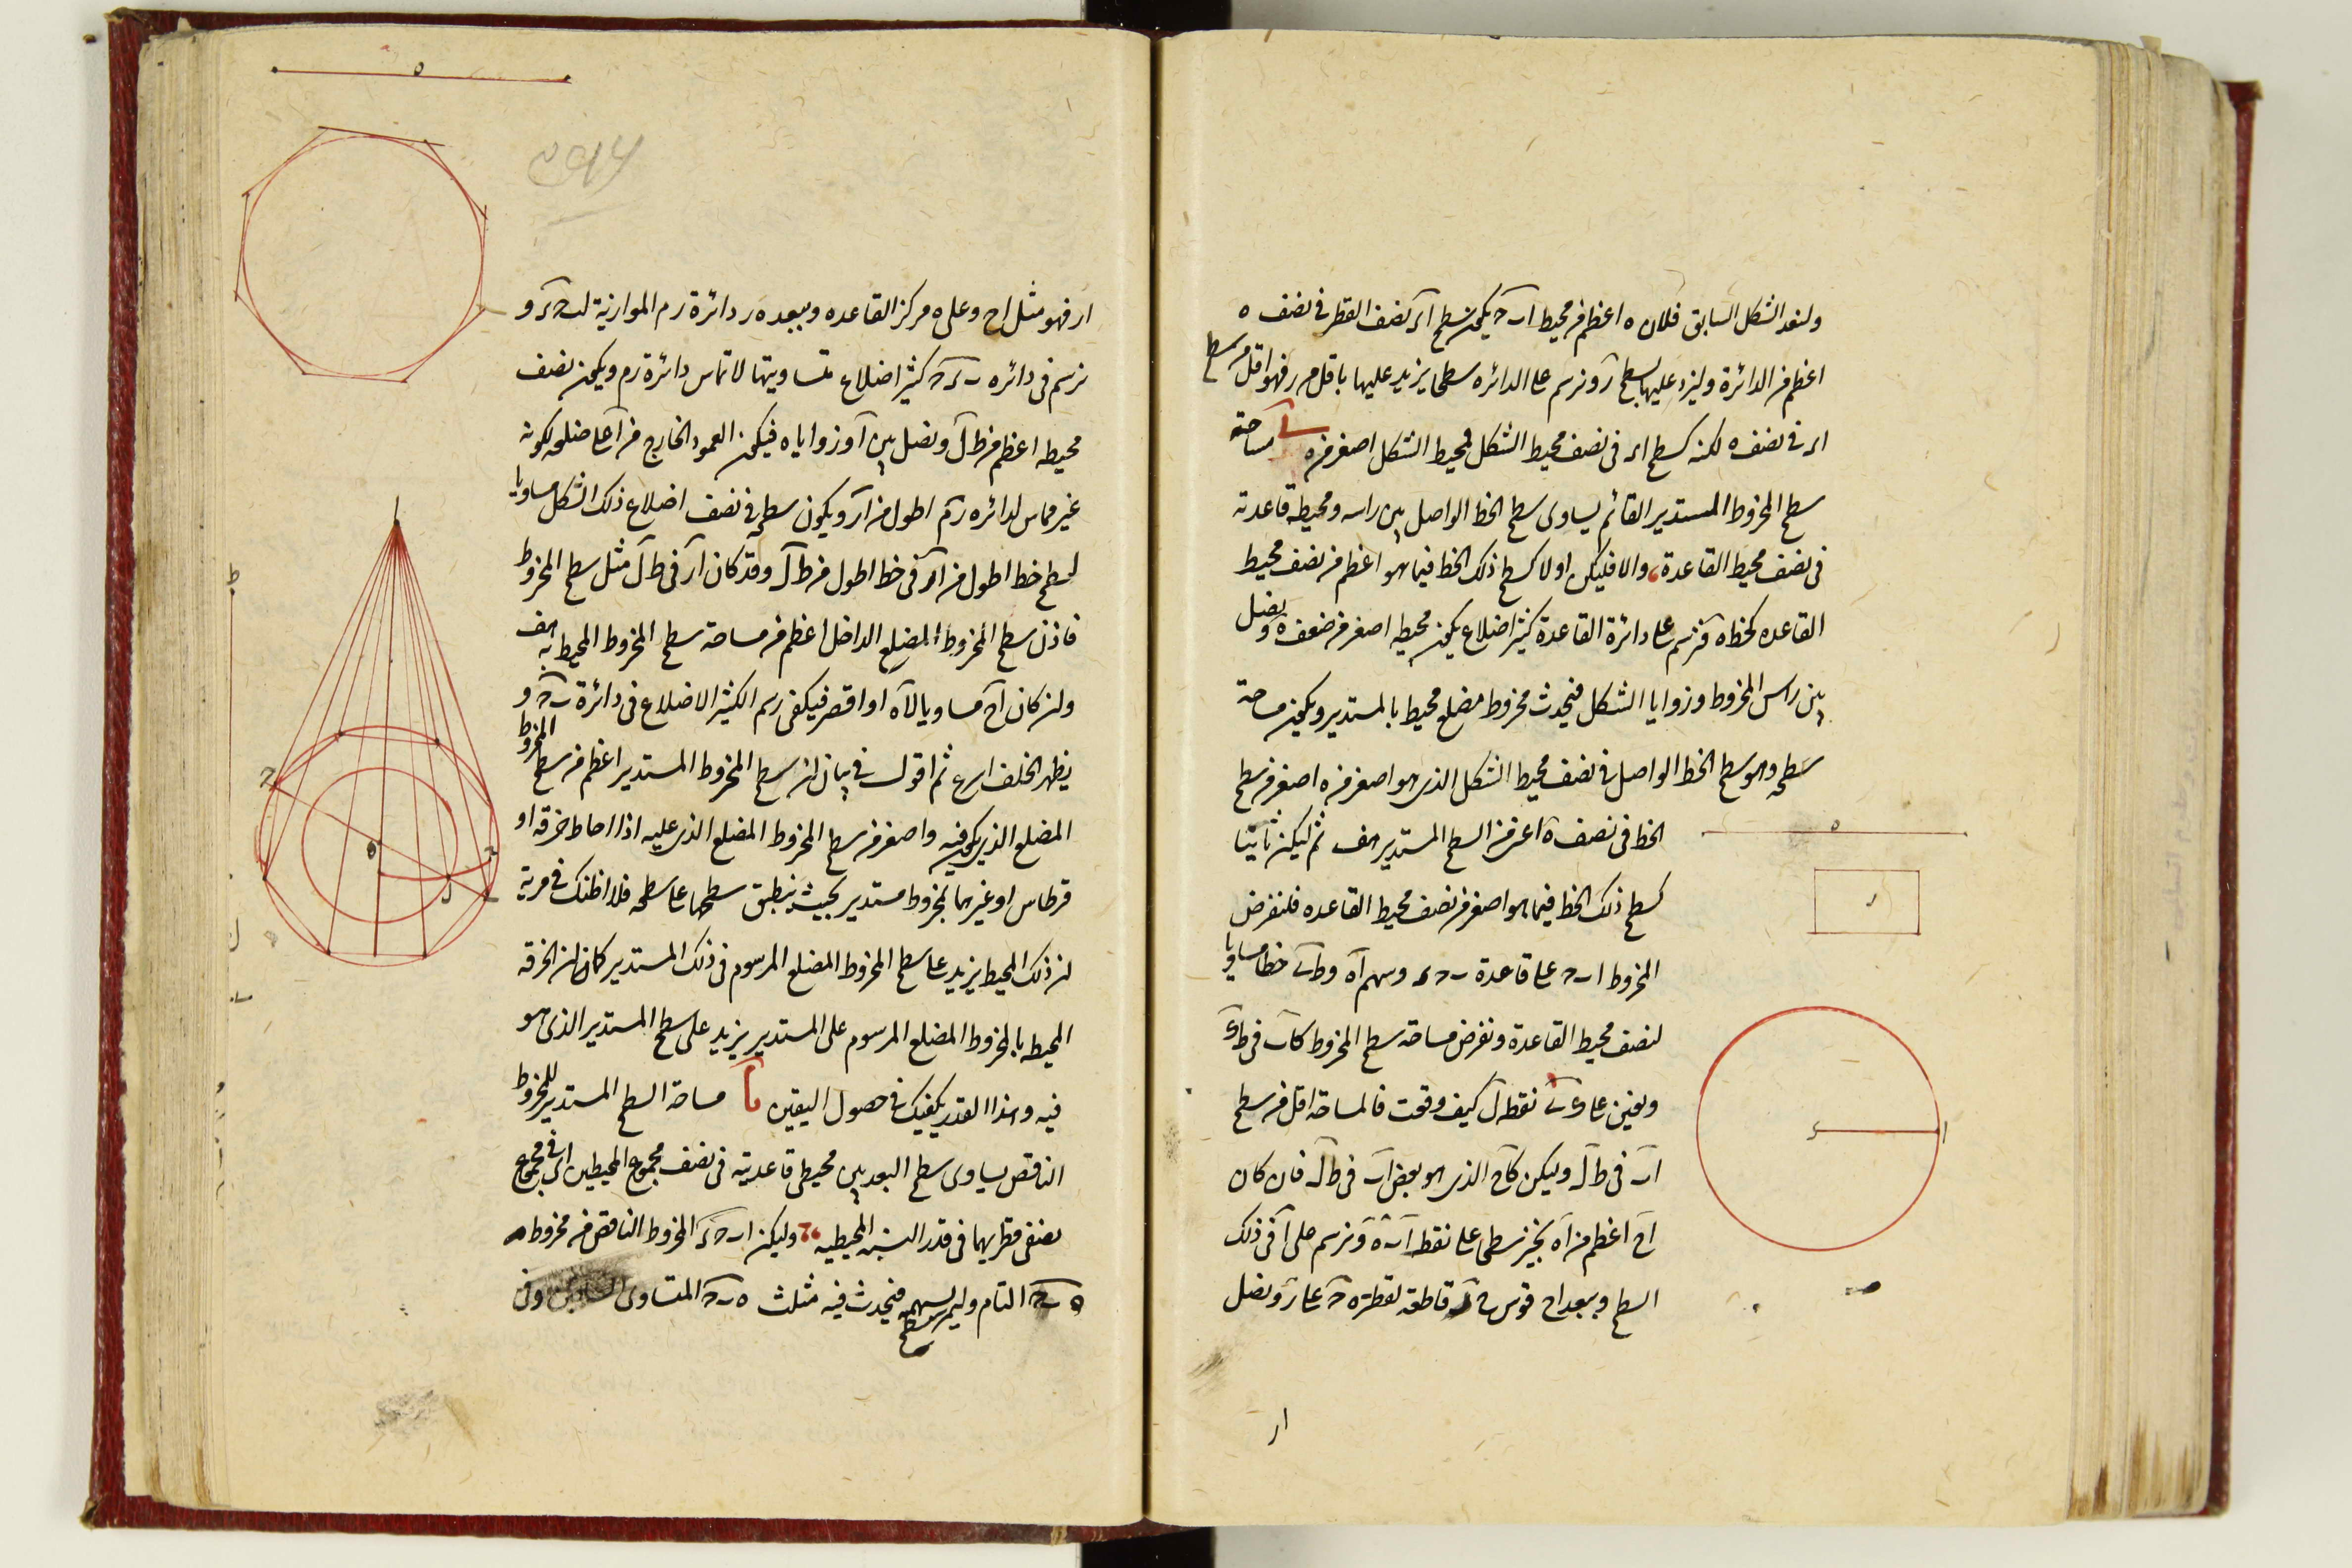 ولنعد الشكل السابق فلان ه اعظم من محيط ا ب ح يكون سطح ا ر نصف القطر فى نصف ه
اعظم من الدائرة وليزد عليها بسطح ر ونرسم على الدائره سطحا يزيد عليها باقل من ر فهو اقل من سطح
ا ر فى نصف ه لكنه كسطح ا ر فى نصف محيط الشكل فمحيط الشكل اصغر من ه مساحة
سطح المخروط المستدير القائم يساوى سطح الخط الواصل بين راسه ومحيط قاعدته
فى نصف محيط القاعدة والا فليكن اولا كسطح ذلك الخط فيما هو اعظم من نصف محيط
القاعده كخط ه فنرسم على دائرة القاعدة كثير اضلاع يكون محيطه اصغر من ضعف ه ونصل
بين راس المخروط وزوايا الشكل فيحدث مخروط مضلع محيط بالمستدير ويكون مساحة
سطحه وهو سطح الخط الواصل فى نصف محيط الشكل الذى هو اصغر من ه اصغر من سطح
الخط فى نصف ه اعنى من السطح المستدير هف ثم ليكن ثانيا
كسطح ذلك الخط فيما هو اصغر من نصف محيط القاعده فلنفرض
المخروط ا ب ح على قاعدة ب ح د وسهم ا ه و ط ب خطا مساويا
لنصف محيط القاعدة ونفرض مساحة سطح المخروط كا ب فى ط ك
ونعين على ك ب نقطه ل كيف وقعت فالمساحة اقل من سطح
ا ب فى ط ل وليكن كا ح الذى هو بعض ا ب فى ط ل فان كان
ا ح اعظم من ا ه نجيز سطحا على نقط ا ب ه ونرسم على ا فى ذلك
السطح وببعد ا ح قوس ح ر قاطعة لقطر ه ح على ر ونصل
ا ر
ا ر فهو مثل ا ح وعلى ه مركز القاعده وببعد ه ر دائرة ر م الموازية لـ ب ح د و
نرسم فى دائره ب د ح كثير اضلاع متساويتها لا تماس دائرة ر م ويكون نصف
محيطه اعظم من ط ل ونصل بين ا وزواياه فيكون العمود الخارج من ا على ضلعه لكونه
غير مماس لدائره ر م اطول من ا ر ويكون سطحه فى نصف اضلاع ذلك الشكل مساويا
لسطح خط اطول من ا ر فى خط اطول من ط ل وقد كان ا ر فى ط ل مثل سطح المخروط
فاذن سطح المخروط المضلع الداخل اعظم من مساحة سطح المخروط المحيط به هف
وان كان ا ح مساويا لا ه او اقصر فيكفى رسم الكثير الاضلاع فى دائرة ب ح د و
يظهر الخلف اسرع ثم اقول فى بيان ان سطح المخروط المستدير اعظم من سطح المخروط
المضلع الذى يكون فيه واصغر من سطح المخروط المضلع الذى عليه اذا احاط خرقه او
قرطاس او غيرهما بمخروط مستدير بحيث ينطبق سطحها على سطحه فلا اظنك فى مرية
ان ذلك المحيط يزيد على سطح المخروط المضلع المرسوم فى ذلك المستدير كما ان الخرقه
المحيط بالمخروط المضلع المرسوم على المستدير يزيد على سطح المستدير الذى هو
فيه وهذا القدر يكفيك فى حصول اليقين ما مساحة السطح المستدير للمخروط
الناقص يساوى سطح البعد بين محيطى قاعدتيه فى نصف مجموع المحيطين اى فى مجموع
نصفى قطريهما فى قدر النسبه المحيطيه وليكن ا ب ح د المخروط الناقص من مخروط
ه ب ح التام وليمر بسهمه سطح فيحدث فيه مثلث ه ب ح المتساوى الساقين وفى